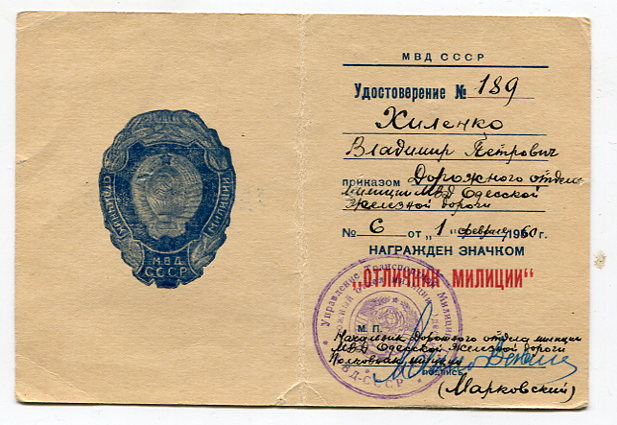 ОТЛИЧНИК МИЛИЦИИ
МВД
СССР
МВД СССР
Удостоверение № 189
Хиленко
Владимир Петрович
приказом Дорожного отдела
милиции МВД Одесской
железной дороги
№ 6 от „1" февраля 1960 г.
НАГРАЖДЕН ЗНАЧКОМ
"ОТЛИЧНИК МИЛИЦИИ"
Управление Транспортной Милиции
МВД-СССР
М. П.
Начальник Дорожного отдела милиции
МВД Одесской железной дороги
Полковник милиции
подпись
(Марковский)